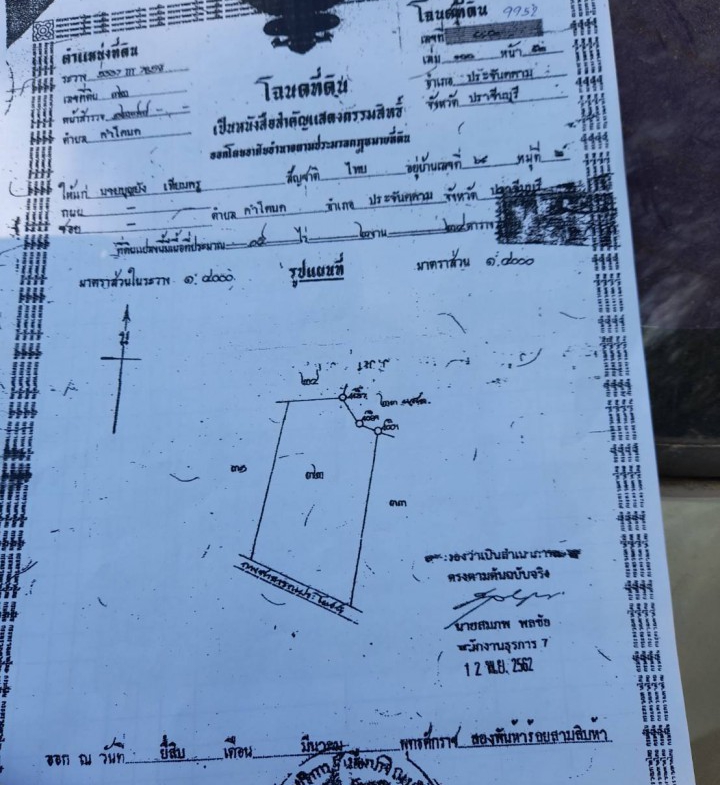 โฉนดที่ดิน 9958
ตำแหน่งที่ดิน
เลขที่
ระวาง
เล่ม ๑๐๐ หน้า ๕๒
เลขที่ดิน ๗๒
อำเภอ ประจันตคาม
หน้าสำรวจ
จังหวัด ปราจีนบุรี
ตำบล คำโตนด
โฉนดที่ดิน
เป็นหนังสือสำคัญแสดงกรรมสิทธิ์
ออกโดยอาศัยอำนาจตามประมวลกฎหมายที่ดิน
ให้แก่ นายบุญยัง สัญชาติ ไทย อยู่บ้านเลขที่ ๖๘ หมู่ที่ ๒
ถนน – ตำบล คำโตนด อำเภอ ประจันตคาม จังหวัด ปราจีนบุรี
ซอย –
ที่ดินแปลงนี้มีเนื้อที่ประมาณ ๑๕ ไร่ ๒ งาน ๒๔ ตารางวา
มาตราส่วนในระวาง ๑:๔๐๐๐ รูปแผนที่ มาตราส่วน ๑:๔๐๐๐
น
๒๔
๗๑
๗๒
๗๓
ทางสาธารณประโยชน์
รับรองว่าเป็นสำเนาภาพถ่าย
ตรงตามต้นฉบับจริง
นายสมภพ พลชัย
พนักงานธุรการ 7
12 พ.ย. 2562
ออก ณ วันที่ ยี่สิบ เดือน มีนาคม พุทธศักราช สองพันห้าร้อยสามสิบห้า